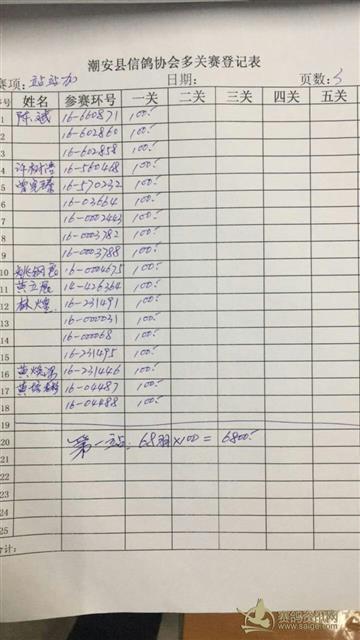 潮安县信鸽协会多关赛登记表
赛项：站站加 日期： 页数：5
序号 姓名 参赛环号 一关 二关 三关 四关 五关
1 陈斌 16-660871 100.-
2 16-602860 100.-
3 16-602858 100.-
4 16-560468 100.-
5 16-570232 100.-
6 16-03664 100.-
7 16-0002443 100.-
8 16-0003782 100.-
9 16-0003788 100.-
10 16-0004675 100.-
11 14-426364 100.-
12 林煌 16-231491 100.-
13 16-000031 100.-
14 16-000068 100.-
15 16-231495 100.-
16 16-231446 100.-
17 16-04487 100.-
18 16-04488 100.-
19
20 第一站: 68羽×100 = 6800.-
21
22
23
24
25
合计：
赛鸽资讯网
www.saige.com